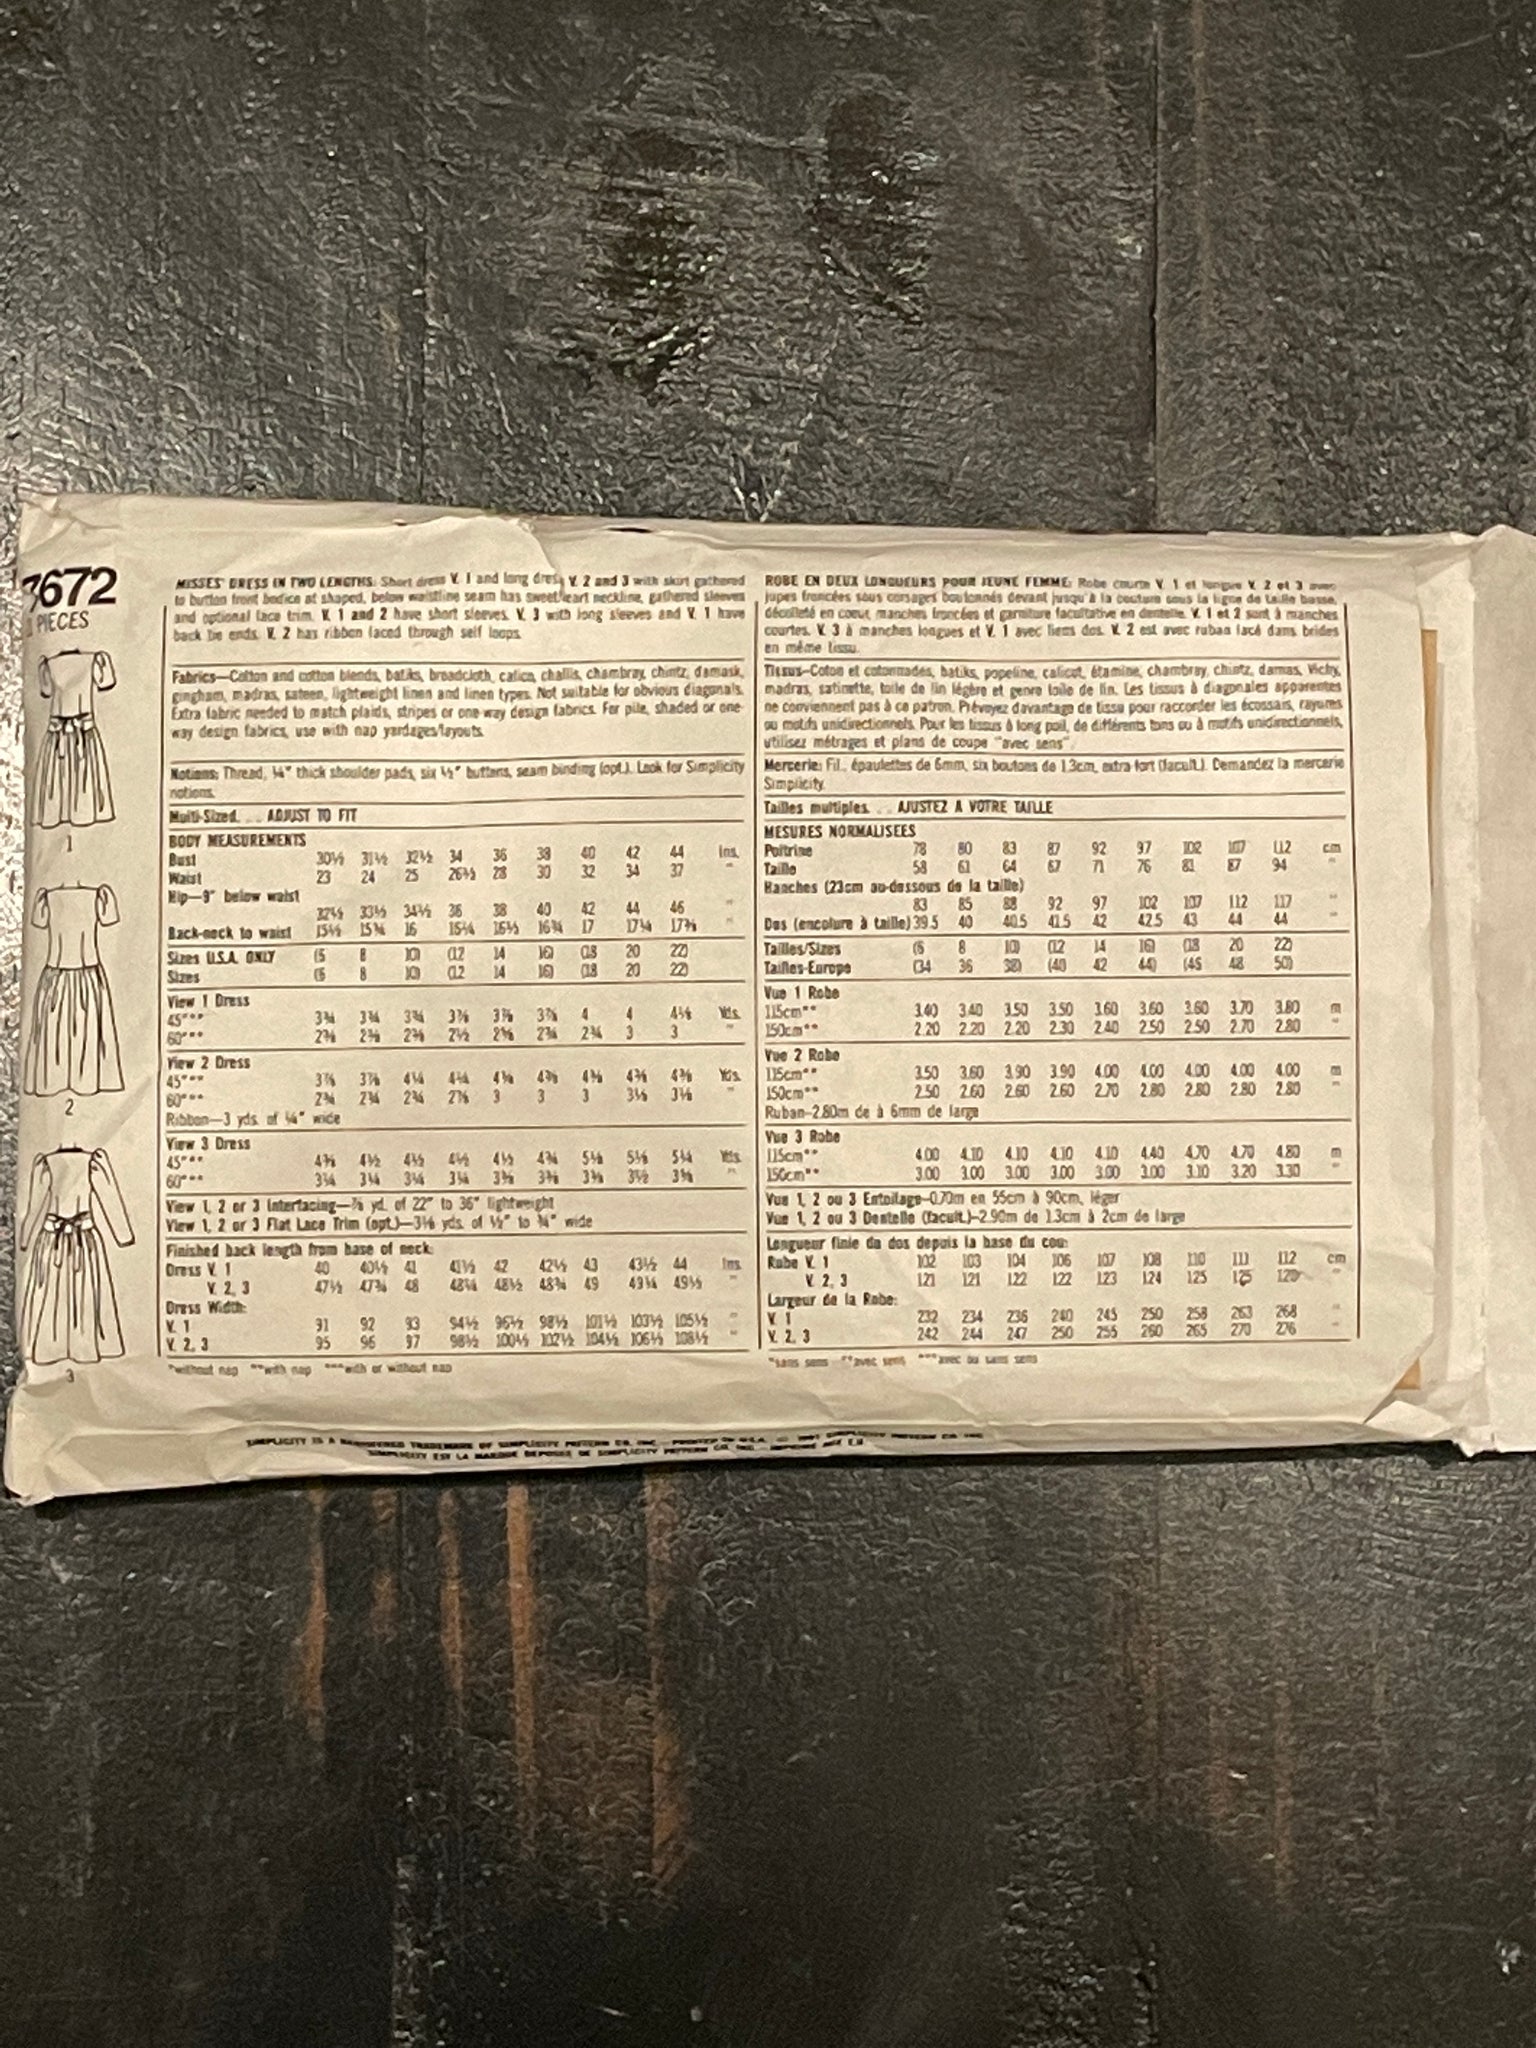 3672
PIECES
1
2
3
MISSES' DRESS IN TWO LENGTHS: Short dress V. 1 and long dress V. 2 and 3 with skirt gathered
to button front bodice at shaped, below waistline seam has sweetheart neckline, gathered sleeves
and optional lace trim. V. 1 and 2 have short sleeves. V. 3 with long sleeves and V. 1 have
back tie ends. V. 2 has ribbon laced through self loops.
Fabrics—Cotton and cotton blends, batiks, broadcloth, calico, challis, chambray, chintz, damask,
gingham, madras, sateen, lightweight linen and linen types. Not suitable for obvious diagonals.
Extra fabric needed to match plaids, stripes or one-way design fabrics. For pile, shaded or one-
way design fabrics, use with nap yardages/layouts.
Notions: Thread, ¼" thick shoulder pads, six ½" buttons, seam binding (opt.). Look for Simplicity
notions.
Multi-Sized. . . ADJUST TO FIT
BODY MEASUREMENTS
Bust 30½ 31½ 32½ 34 36 38 40 42 44 Ins.
Waist 23 24 25 26½ 28 30 32 34 37 "
Hip—9" below waist
32½ 33½ 34½ 36 38 40 42 44 46 "
Back-neck to waist 15½ 15¾ 16 16¼ 16½ 16¾ 17 17¼ 17⅜ "
Sizes U.S.A. ONLY (6 8 10) (12 14 16) (18 20 22)
Sizes (6 8 10) (12 14 16) (18 20 22)
View 1 Dress
45"*** 3¾ 3¾ 3¾ 3⅞ 3⅞ 3⅞ 4 4 4⅛ Yds.
60"*** 2⅜ 2⅜ 2⅜ 2½ 2⅝ 2¾ 2¾ 3 3 "
View 2 Dress
45"*** 3⅞ 3⅞ 4¼ 4¼ 4⅜ 4⅜ 4⅜ 4⅜ 4⅜ Yds.
60"*** 2¾ 2¾ 2¾ 2⅞ 3 3 3 3⅛ 3⅛ "
Ribbon—3 yds. of ¼" wide
View 3 Dress
45"*** 4⅜ 4½ 4½ 4½ 4½ 4¾ 5⅛ 5⅛ 5¼ Yds.
60"*** 3¼ 3¼ 3¼ 3¼ 3⅜ 3⅜ 3⅜ 3½ 3⅝ "
View 1, 2 or 3 Interfacing—⅞ yd. of 22" to 36" lightweight
View 1, 2 or 3 Flat Lace Trim (opt.)—3⅛ yds. of ½" to ¾" wide
Finished back length from base of neck:
Dress V. 1 40 40½ 41 41½ 42 42½ 43 43½ 44 Ins.
V. 2, 3 47½ 47¾ 48 48¼ 48½ 48¾ 49 49¼ 49½ "
Dress Width:
V. 1 91 92 93 94½ 96½ 98½ 101½ 103½ 105½ "
V. 2, 3 95 96 97 98½ 100½ 102½ 104½ 106½ 108½ "
*without nap **with nap ***with or without nap
ROBE EN DEUX LONGUEURS POUR JEUNE FEMME: Robe courte V. 1 et longue V. 2 et 3 avec
jupes froncées sous corsages boutonnés devant jusqu'à la couture sous la ligne de taille basse,
décolleté en coeur, manches froncées et garniture facultative en dentelle. V. 1 et 2 sont à manches
courtes. V. 3 à manches longues et V. 1 avec liens dos. V. 2 est avec ruban lacé dans brides
en même tissu.
Tissus—Coton et cotonnades, batiks, popeline, calicot, étamine, chambray, chintz, damas, Vichy,
madras, satinette, toile de lin légère et genre toile de lin. Les tissus à diagonales apparentes
ne conviennent pas à ce patron. Prévoyez davantage de tissu pour raccorder les écossais, rayures
ou motifs unidirectionnels. Pour les tissus à long poil, de différents tons ou à motifs unidirectionnels,
utilisez métrages et plans de coupe "avec sens".
Mercerie: Fil., épaulettes de 6mm, six boutons de 1.3cm, extra fort (facult.). Demandez la mercerie
Simplicity.
Tailles multiples. . . AJUSTEZ A VOTRE TAILLE
MESURES NORMALISEES
Poitrine 78 80 83 87 92 97 102 107 112 cm
Taille 58 61 64 67 71 76 81 87 94 "
Hanches (23cm au-dessous de la taille)
83 85 88 92 97 102 107 112 117 "
Dos (encolure à taille) 39.5 40 40.5 41.5 42 42.5 43 44 44 "
Tailles/Sizes (6 8 10) (12 14 16) (18 20 22)
Tailles-Europe (34 36 38) (40 42 44) (46 48 50)
Vue 1 Robe
115cm** 3.40 3.40 3.50 3.50 3.60 3.60 3.60 3.70 3.80 m
150cm** 2.20 2.20 2.20 2.30 2.40 2.50 2.50 2.70 2.80 "
Vue 2 Robe
115cm** 3.50 3.60 3.90 3.90 4.00 4.00 4.00 4.00 4.00 m
150cm** 2.50 2.60 2.60 2.60 2.70 2.80 2.80 2.80 2.80 "
Ruban-2.80m de à 6mm de large
Vue 3 Robe
115cm** 4.00 4.10 4.10 4.10 4.10 4.40 4.70 4.70 4.80 m
150cm** 3.00 3.00 3.00 3.00 3.00 3.00 3.10 3.20 3.30 "
Vue 1, 2 ou 3 Entoilage-0.70m en 55cm à 90cm, léger
Vue 1, 2 ou 3 Dentelle (facult.)-2.90m de 1.3cm à 2cm de large
Longueur finie du dos depuis la base du cou:
Robe V. 1 102 103 104 106 107 108 110 111 112 cm
V. 2, 3 121 121 122 122 123 124 125 125 "
Largeur de la Robe:
V. 1 232 234 236 240 245 250 258 263 268 "
V. 2, 3 242 244 247 250 255 260 265 270 276 "
*sans sens **avec sens ***avec ou sans sens
SIMPLICITY IS A REGISTERED TRADEMARK OF SIMPLICITY PATTERN CO. INC. — PRINTED IN U.S.A. © 1981 SIMPLICITY PATTERN CO. INC.
SIMPLICITY EST LA MARQUE DEPOSEE DE SIMPLICITY PATTERN CO. INC. — IMPRIME AUX E.U.